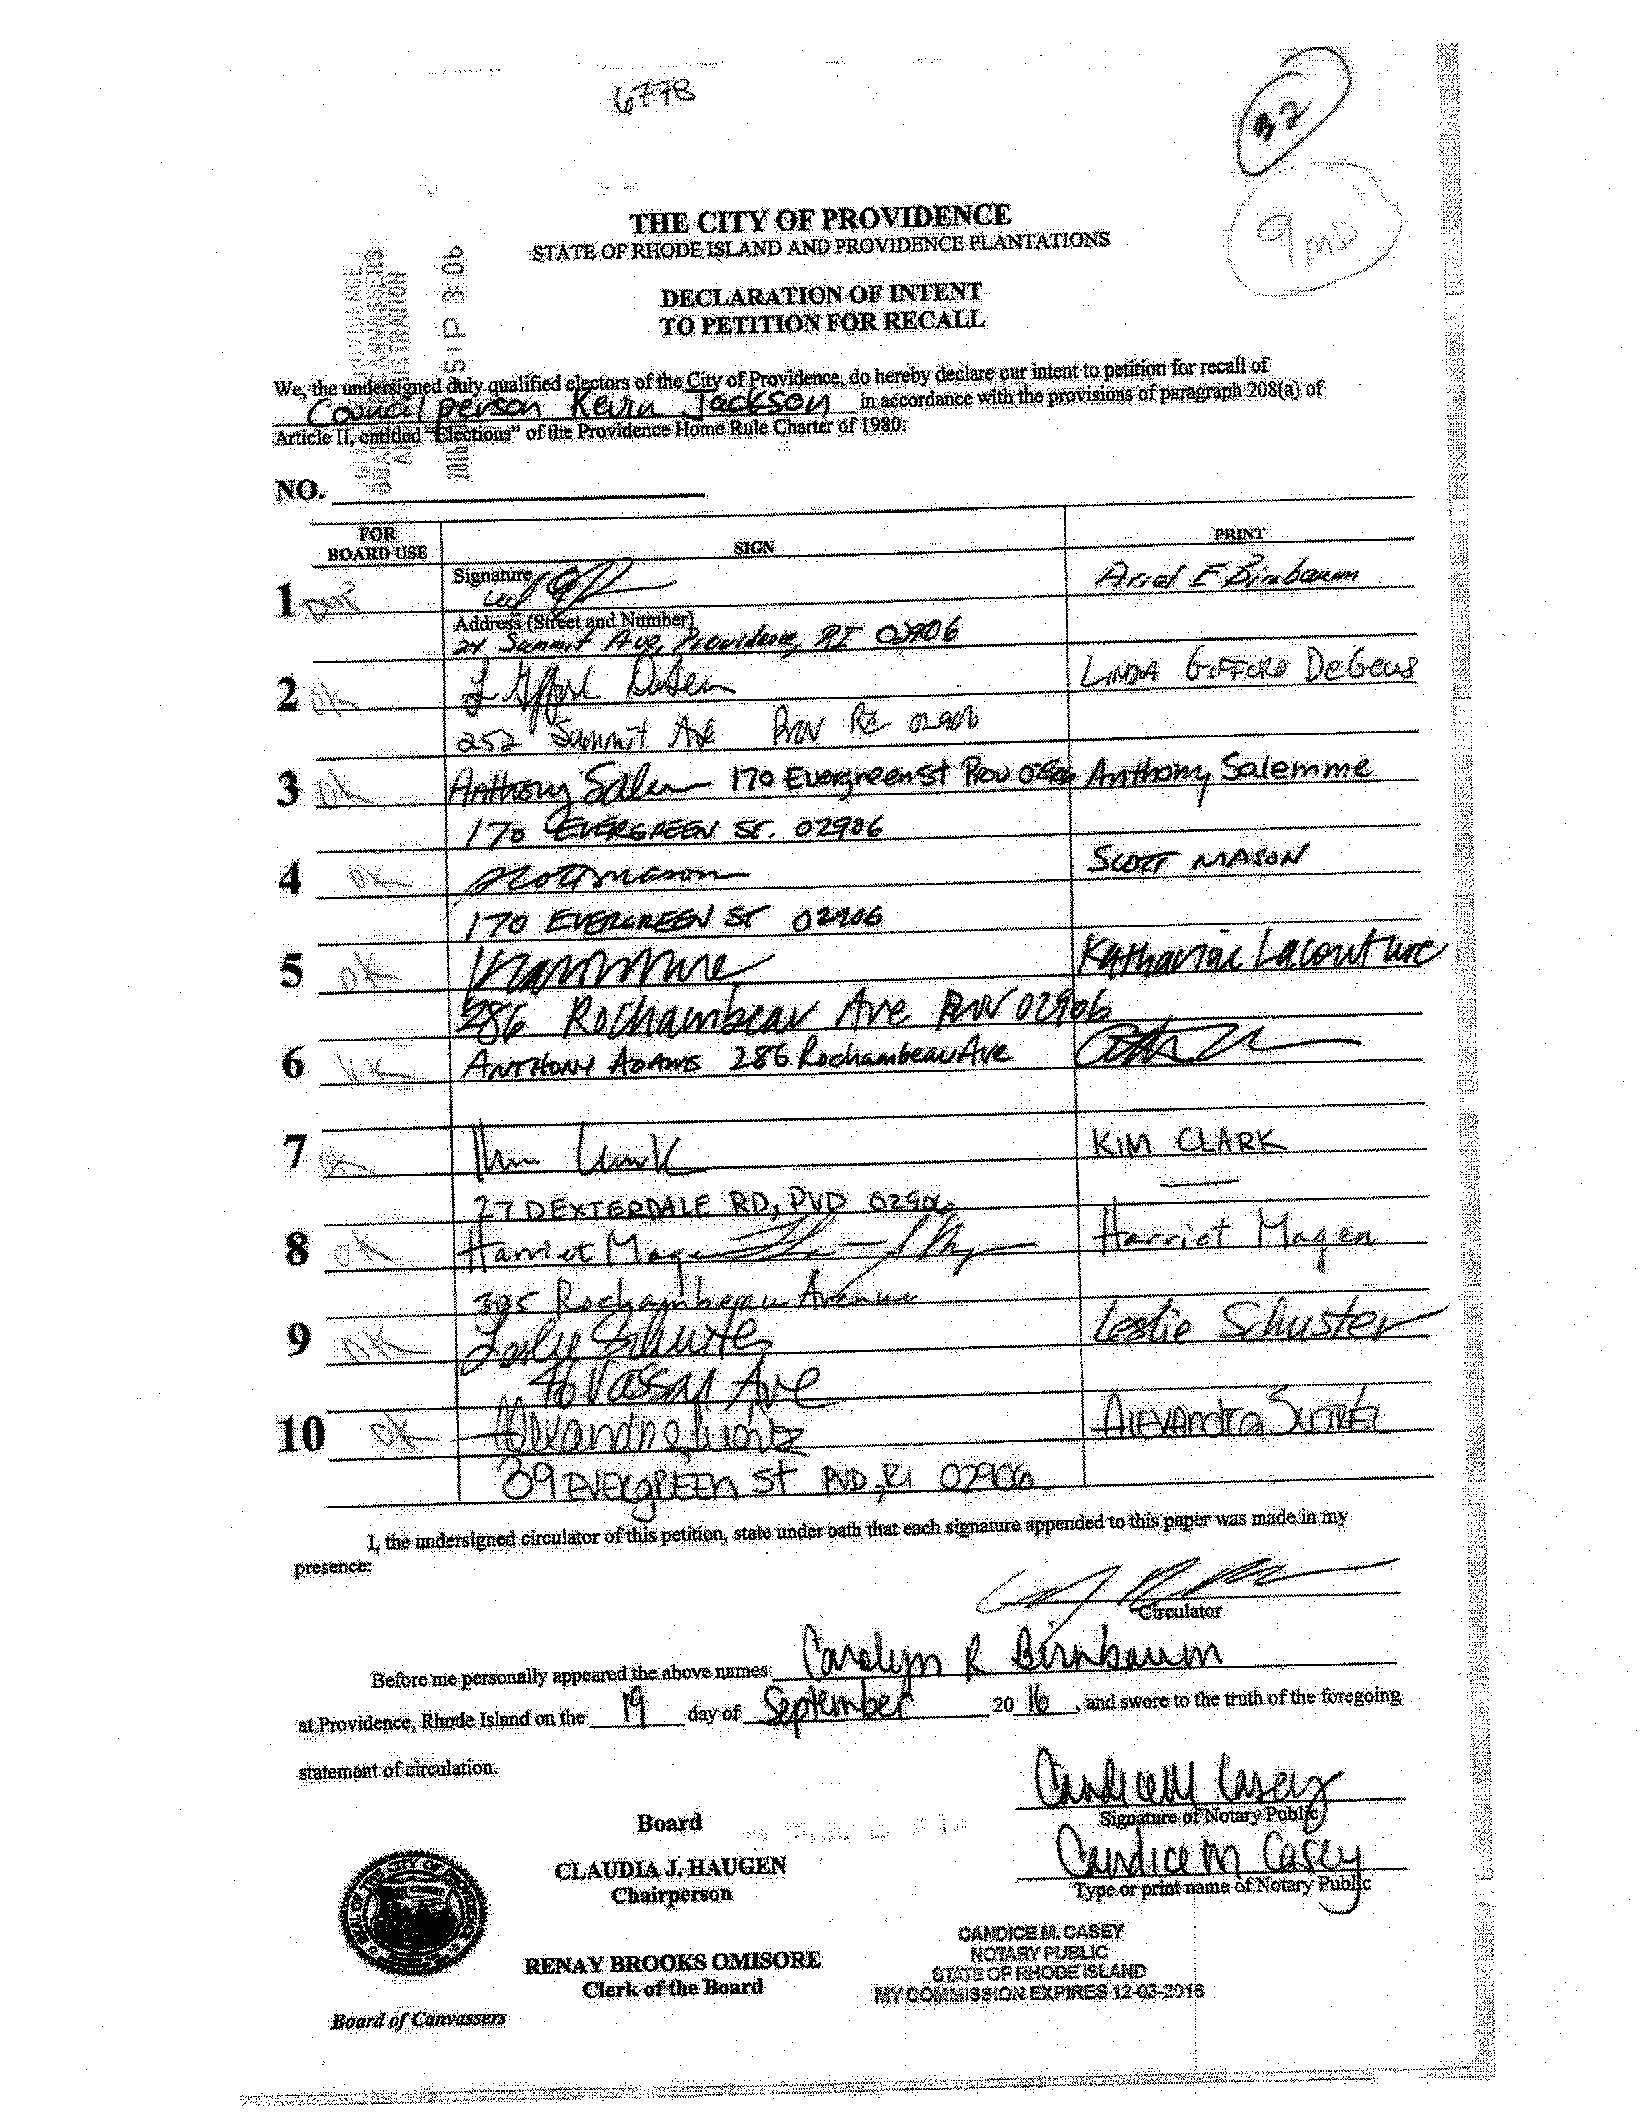 32
THE CITY OF PROVIDENCE
STATE OF RHODE ISLAND AND PROVIDENCE PLANTATIONS
9
DECLARATION OF INTENT
TO PETITION FOR RECALL
We, the undersigned duly qualified electors of the City of Providence, do hereby declare our intent to petition for recall of
Councilperson Kevin Jackson in accordance with the provisions of paragraph 208(a) of
Article II, entitled "Elections" of the Providence Home Rule Charter of 1980:
NO.
FOR BOARD USE SIGN PRINT
1 Signature Ariel E Birnbaum
Address (Street and Number)
24 Summit Ave, Providence, RI 02906
2 OK L Gifford DeGeus LINDA GIFFORD DeGeus
252 Summit Ave Prov RI 02906
3 OK Anthony Salem 170 Evergreen St Prov 02906 Anthony Salemme
170 EVERGREEN ST. 02906
4 OK Scott Mason SCOTT MASON
170 EVERGREEN ST 02906
5 OK Katharine Lacouture
286 Rochambeau Ave Prov 02906
6 OK ANTHONY ADAMS 286 Rochambeau Ave
7 OK Kim Clark KIM CLARK
77 DEXTERDALE RD, PVD 02906
8 OK Harriet Magen Harriet Magen
395 Rochambeau Avenue
9 OK Leslie Schuster Leslie Schuster
46 Vassar Ave
10 OK
39 EVERGREEN St PVD, RI 02906
I, the undersigned circulator of this petition, state under oath that each signature appended to this paper was made in my
presence:
Circulator
Before me personally appeared the above names: Carolyn R Birnbaum
at Providence, Rhode Island on the 19 day of September 20 16, and swore to the truth of the foregoing
statement of circulation.
Candice M Casey
Signature of Notary Public
Candice M Casey
Type or print name of Notary Public
Board
CLAUDIA J. HAUGEN
Chairperson
RENAY BROOKS OMISORE
Clerk of the Board
Board of Canvassers
CANDICE M. CASEY
NOTARY PUBLIC
STATE OF RHODE ISLAND
MY COMMISSION EXPIRES 12-03-2018